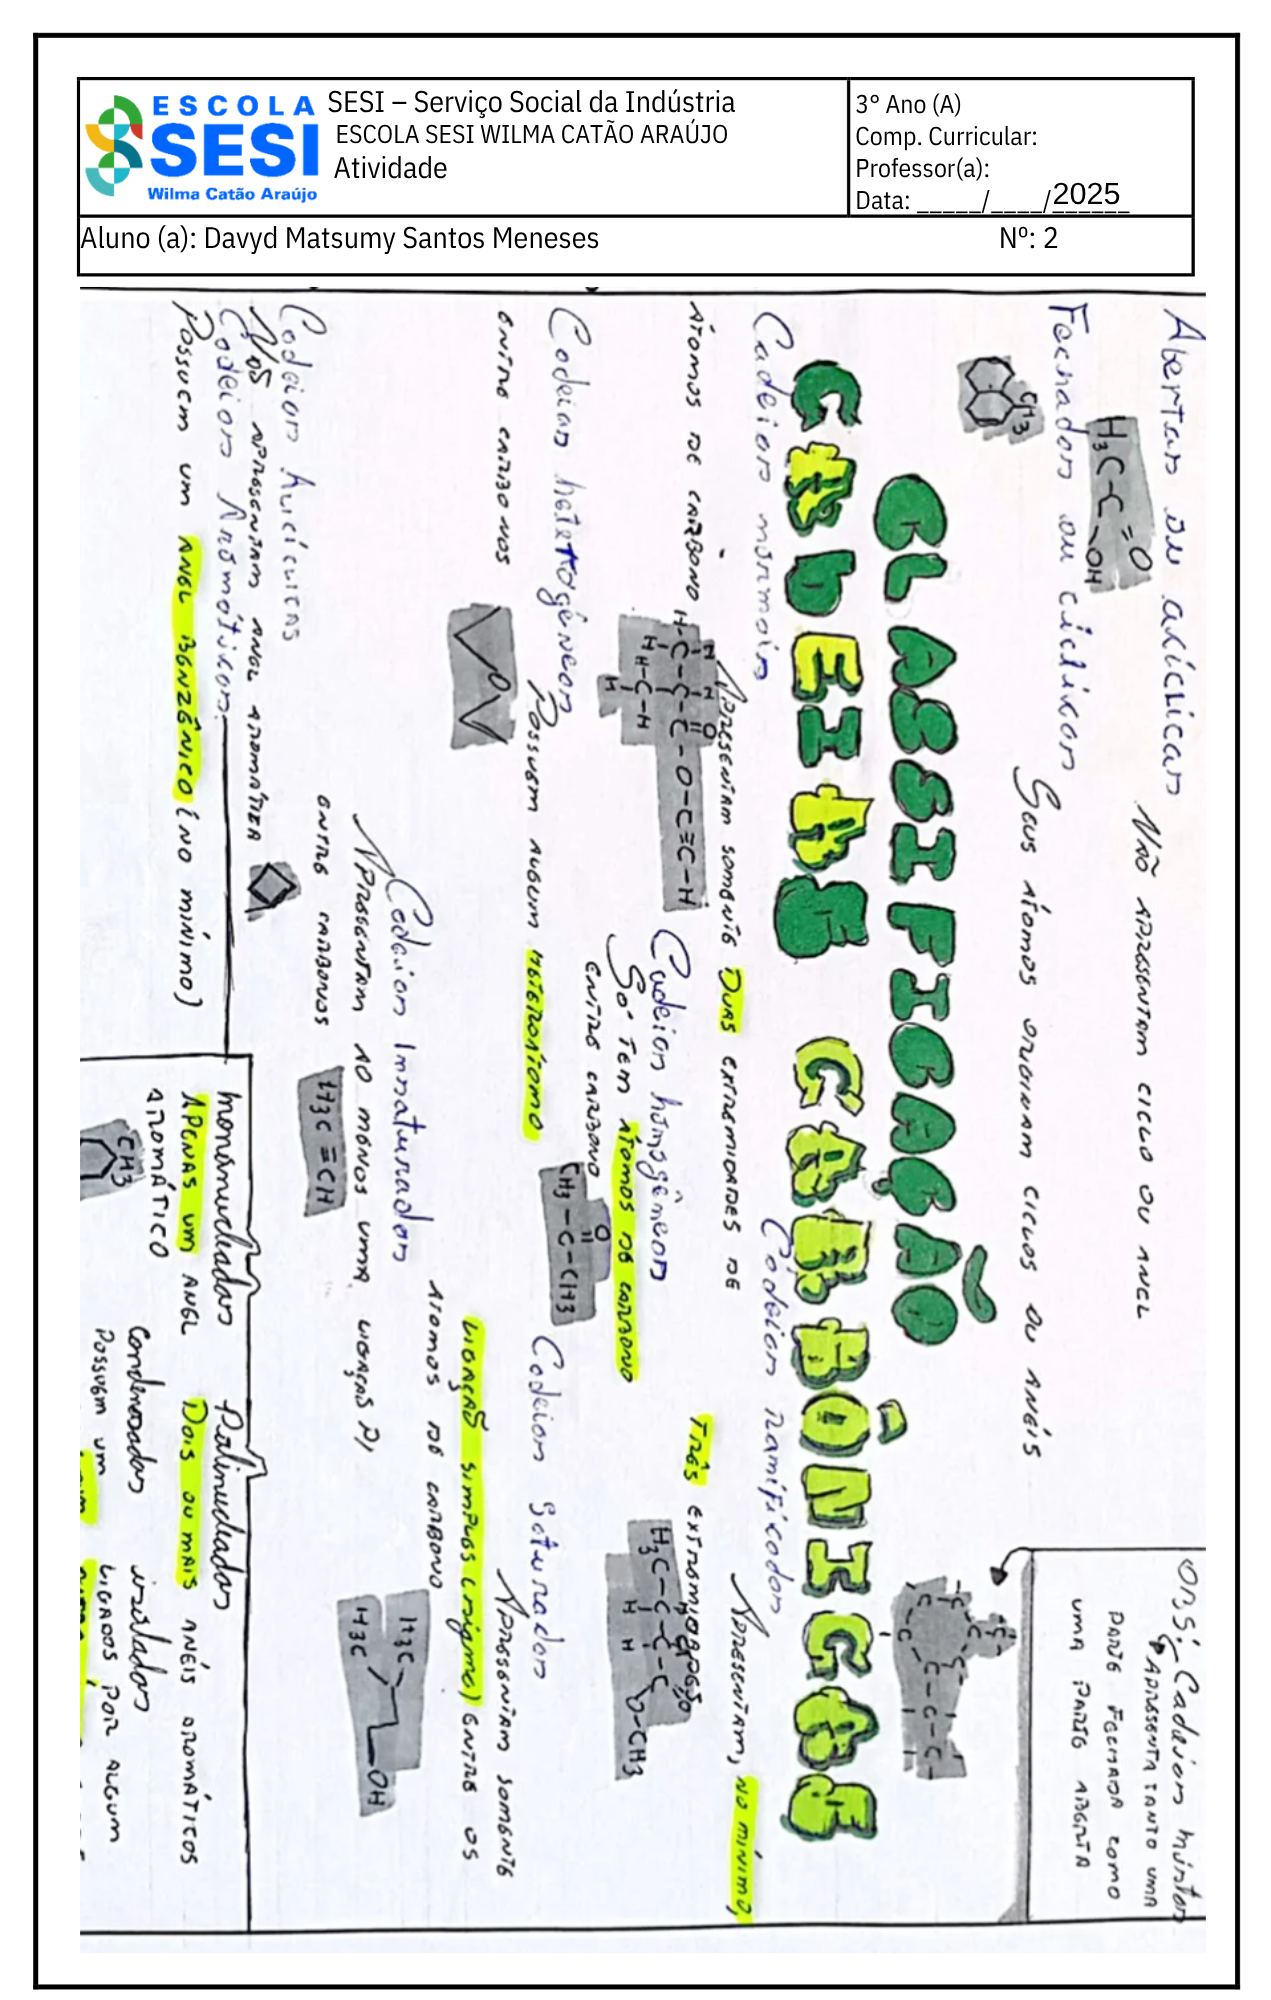 ESCOLA
SESI
Wilma Catão Araújo
SESI – Serviço Social da Indústria
ESCOLA SESI WILMA CATÃO ARAÚJO
Atividade
3° Ano (A)
Comp. Curricular:
Professor(a):
Data: _____/____/2025
Aluno (a): Davyd Matsumy Santos Meneses
Nº: 2
Abertas ou acíclicas
Não apresentam ciclo ou anel
H₃C-C=O
OH
Fechadas ou cíclicas
Seus átomos originam ciclos ou anéis
CH3
obs: Cadeias mistas
Apresenta tanto uma
parte fechada como
uma parte aberta
CLASSIFICAÇÃO
CADEIAS CARBÔNICAS
Cadeias normais
Apresentam somente duas extremidades de
átomos de carbono
Cadeias ramificadas
Apresentam, no mínimo,
três extremidades
Cadeias homogêneas
Só tem átomos de carbono
entre carbono
CH3-C-CH3
O
Cadeias heterogêneas
Possuem algum heteroátomo
entre carbonos
O
Cadeias Saturadas
Apresentam somente
ligação simples (sigma) entre os
átomos de carbono
H3C
H3C
OH
Cadeias Insaturadas
Apresentam ao menos uma ligação pi
entre carbonos
H3C≡CH
Cadeias Alicíclicas
Não apresentam anel aromático
Cadeias Aromáticas:
Possuem um anel benzênico (no mínimo)
mononucleadas
Apenas um anel
aromático
CH3
Polinucleadas
Dois ou mais anéis aromáticos
Condensadas
Possuem um
isoladas
Ligados por algum